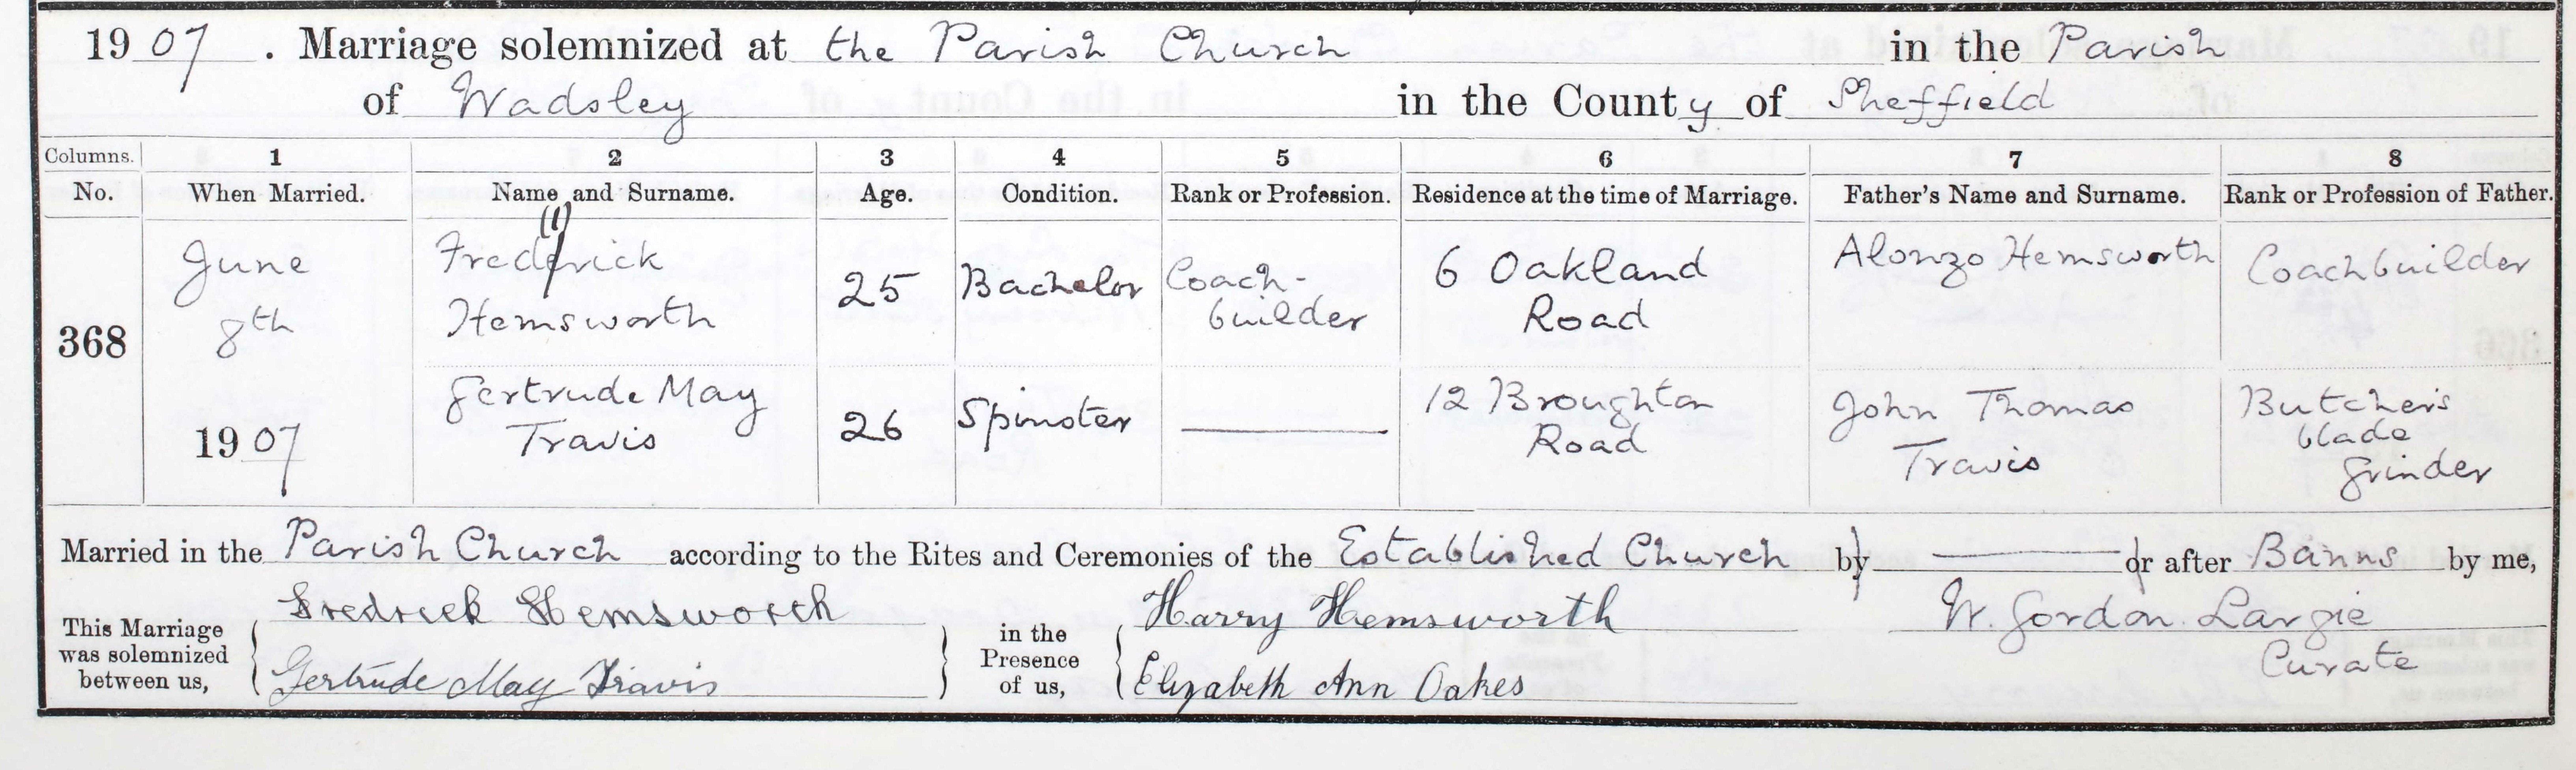 1907. Marriage solemnized at the Parish Church in the Parish
of Wadsley in the County of Sheffield
Columns. 1 2 3 4 5 6 7 8
No. When Married. Name and Surname. Age. Condition. Rank or Profession. Residence at the time of Marriage. Father's Name and Surname. Rank or Profession of Father.
(1)
368
June
8th
1907
Fredrick
Hemsworth
25
Bachelor
Coach-
builder
6 Oakland
Road
Alonzo Hemsworth
Coachbuilder
Gertrude May
Travis
26
Spinster
12 Broughton
Road
John Thomas
Travis
Butcher's
blade
grinder
Married in the Parish Church according to the Rites and Ceremonies of the Established Church by or after Banns by me,
This Marriage
was solemnized
between us,
Fredrick Hemsworth
Gertrude May Travis
in the
Presence
of us,
Harry Hemsworth
Elizabeth Ann Oakes
W. Gordon Largie
Curate